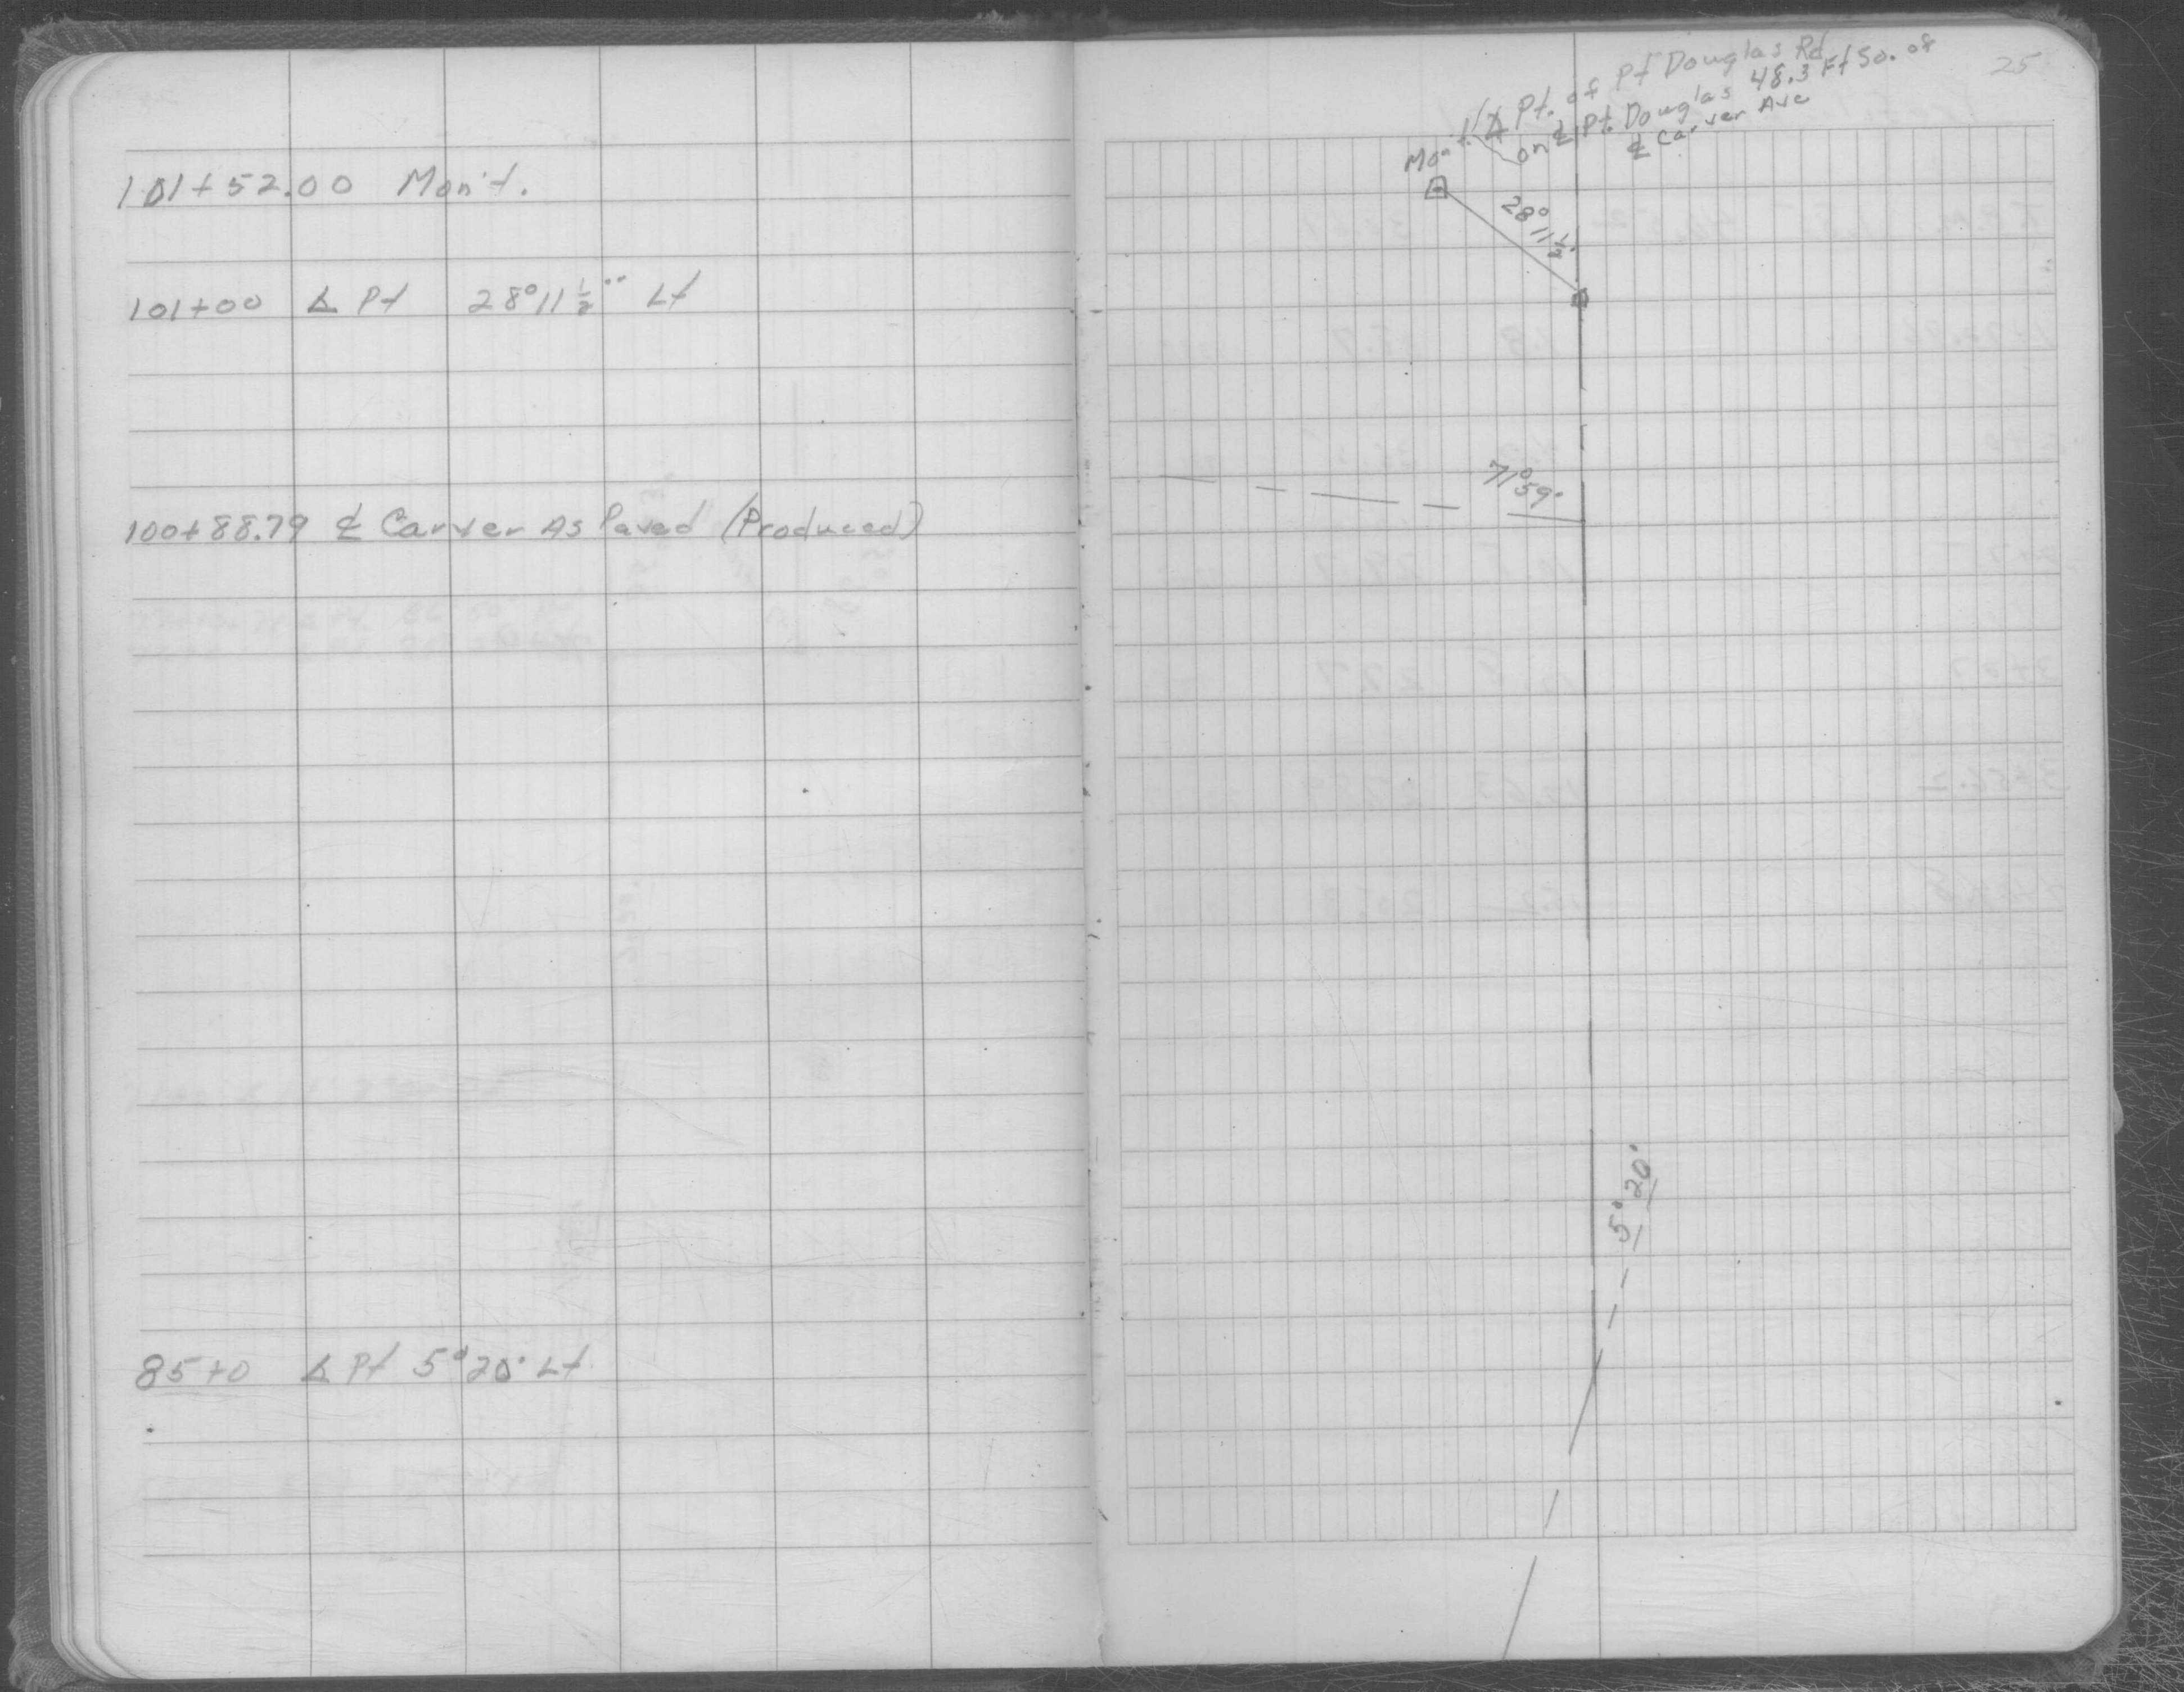 101+52.00 Mon't.
101+00 ∆ Pt 28°11½'' Lt
100+88.79 ℄ Carver As Paved (Produced)
85+0 ∆ Pt 5°20' Lt
25
∆ Pt. of Pt Douglas Rd
on ℄ Pt. Douglas 48.3 Ft So. of
℄ Carver Ave
Mon't.
28°11½'
71°59'
5°20'